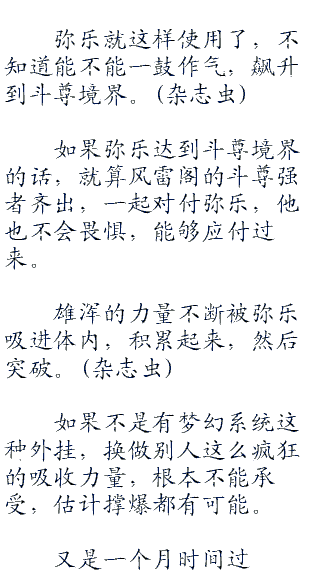 弥乐就这样使用了，不
知道能不能一鼓作气，飙升
到斗尊境界。(杂志虫)
如果弥乐达到斗尊境界
的话，就算风雷阁的斗尊强
者齐出，一起对付弥乐，他
也不会畏惧，能够应付过
来。
雄浑的力量不断被弥乐
吸进体内，积累起来，然后
突破。(杂志虫)
如果不是有梦幻系统这
种外挂，换做别人这么疯狂
的吸收力量，根本不能承
受，估计撑爆都有可能。
又是一个月时间过